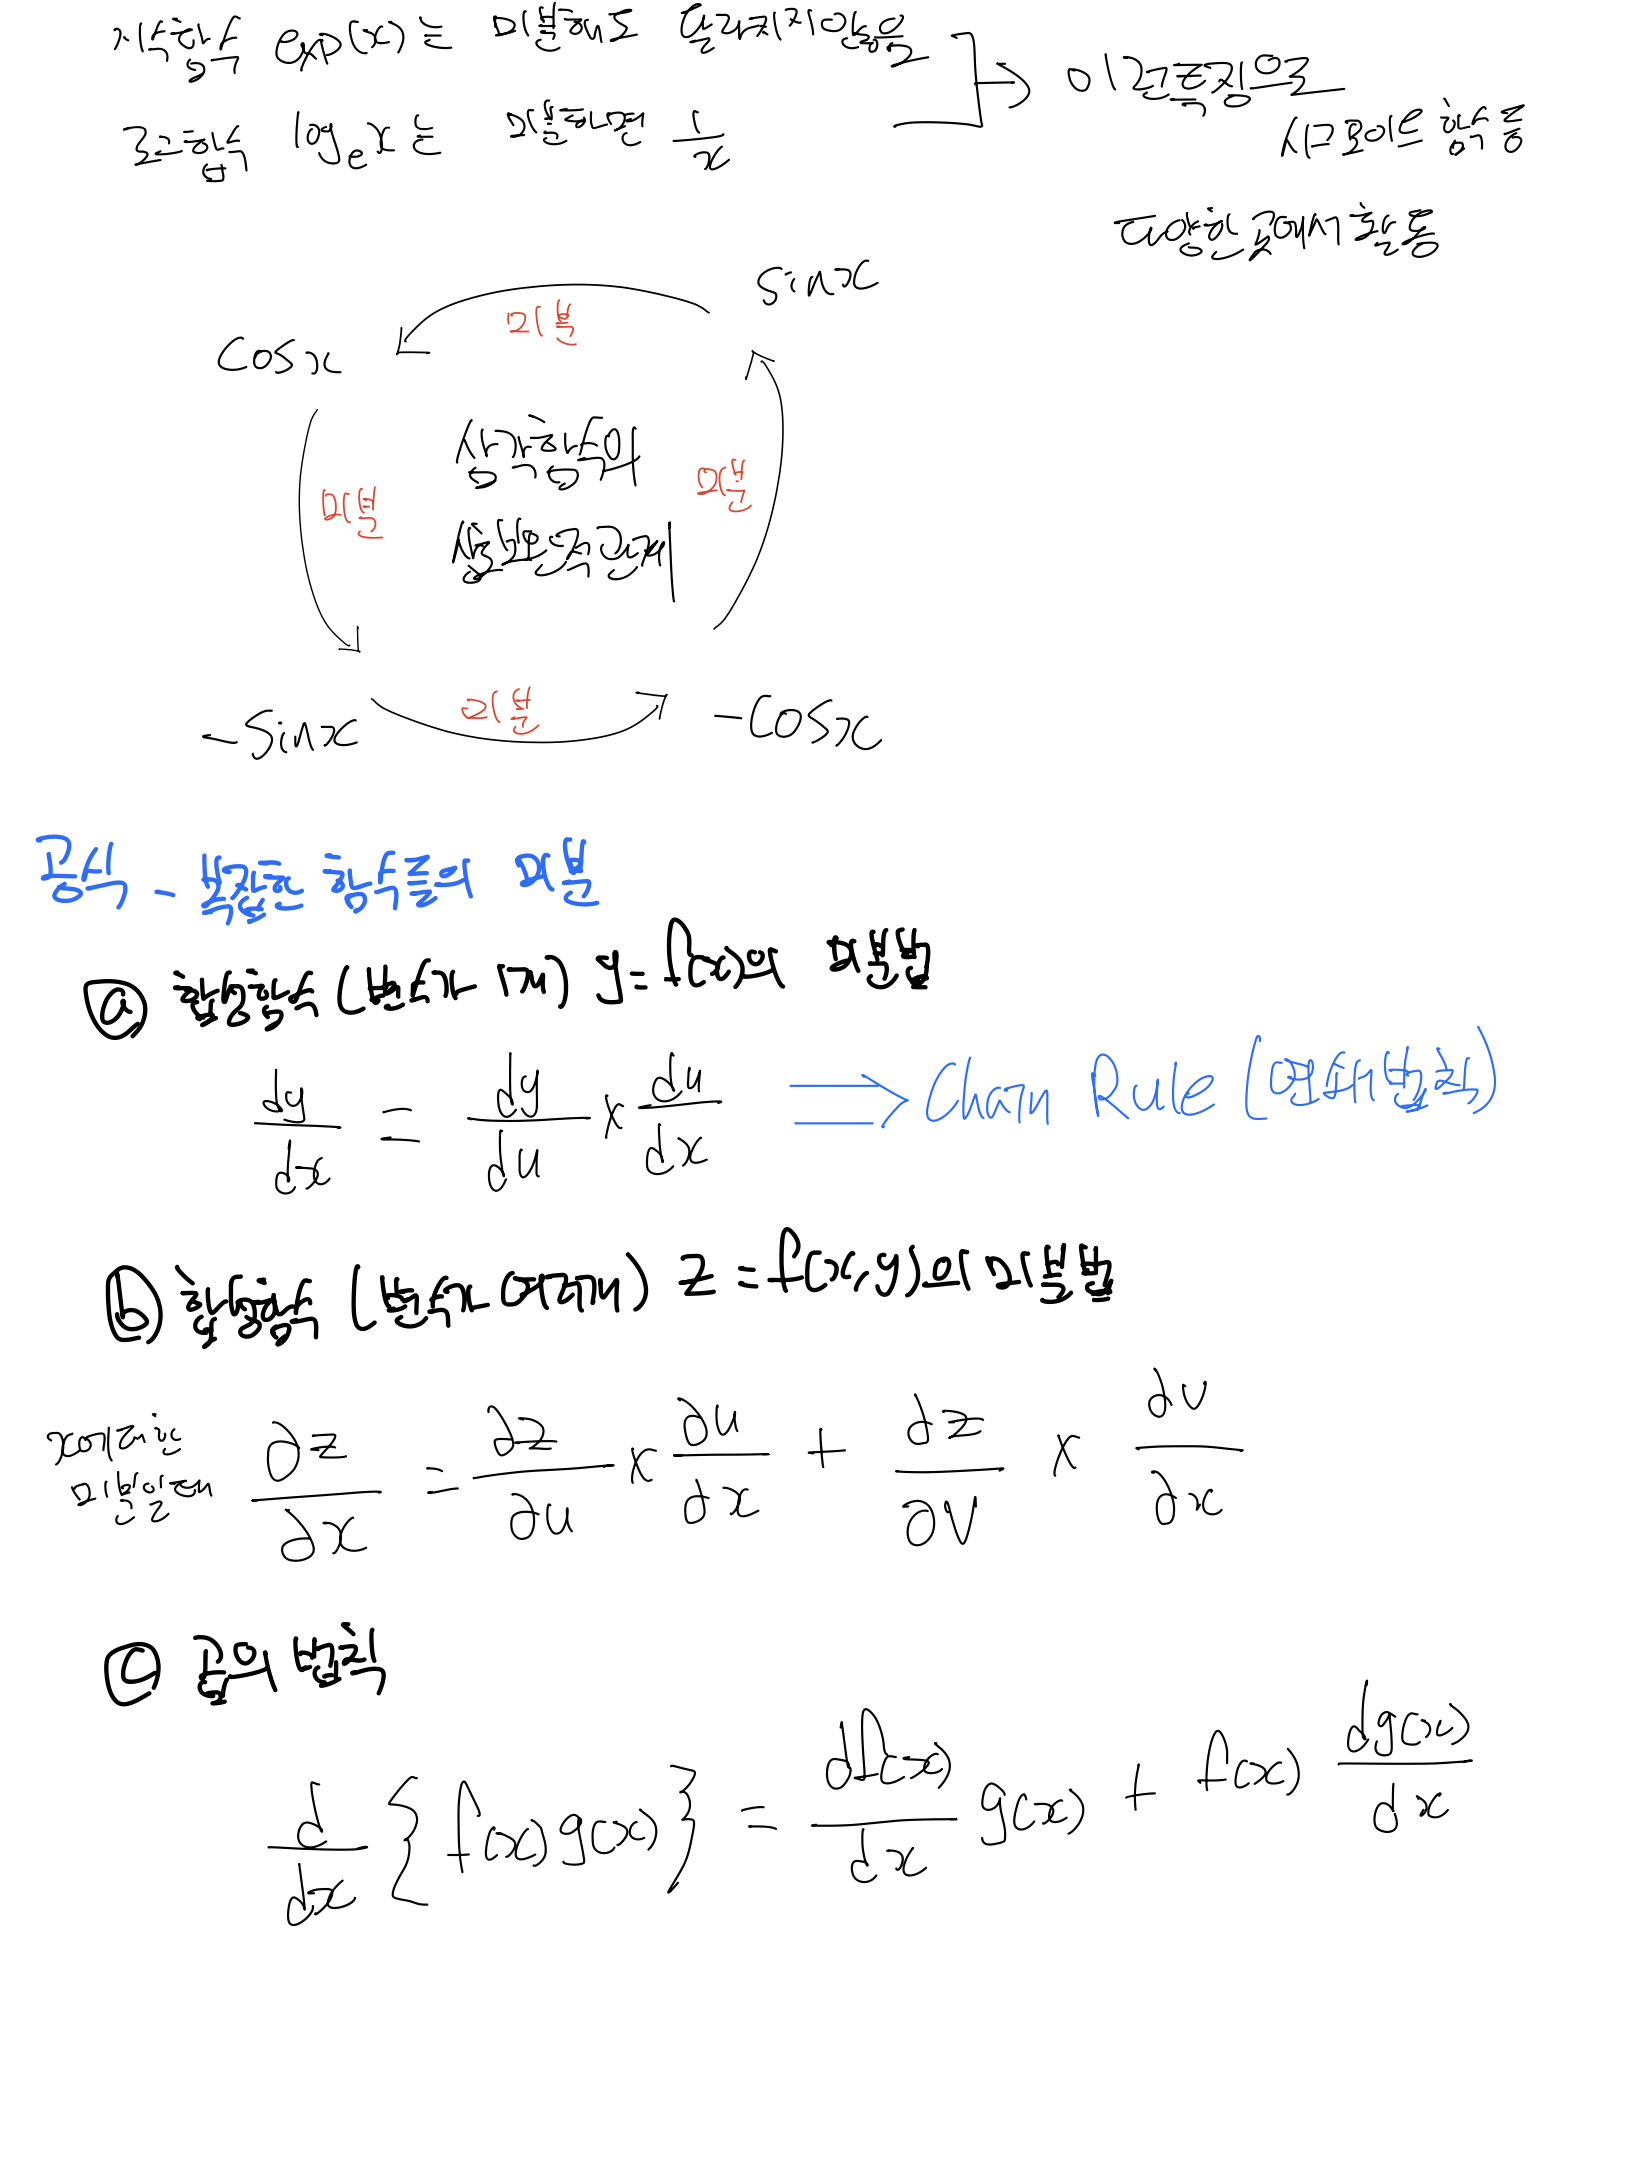 지수함수 exp(x)는 미분해도 달라지지않음
로그함수 log_e x는 미분하면 1/x
이런특징으로
시그모이드 함수 등
다양한 곳에서 활용
sinx
미분
cosx
삼각함수의
미분
미분
상호보완적관계
-sinx
미분
-cosx
공식 - 복잡한 함수들의 미분
ⓐ 합성함수 (변수가 1개) y=f(x)의 미분법
dy/dx = dy/du × du/dx ⇒ Chain Rule (연쇄법칙)
ⓑ 합성함수 (변수가 여러개) z=f(x,y)의 미분법
x에대한
미분일때
∂z/∂x = ∂z/∂u × ∂u/∂x + ∂z/∂v × ∂v/∂x
ⓒ 곱의 법칙
d/dx {f(x)g(x)} = df(x)/dx g(x) + f(x) dg(x)/dx